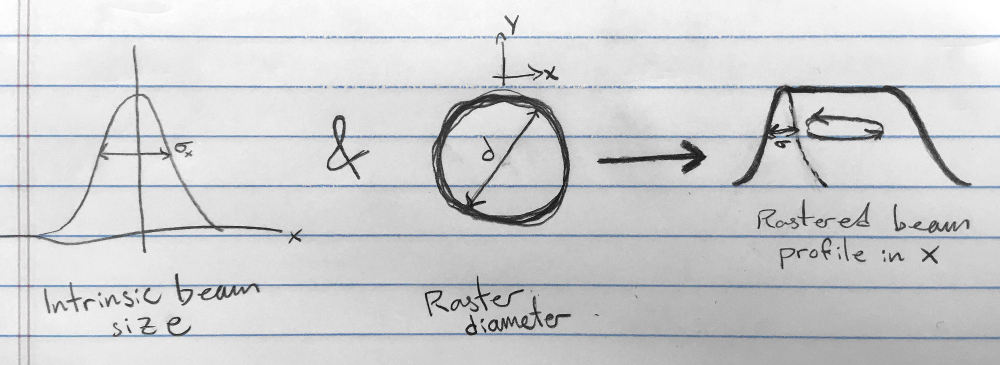 Y
x
σx
&
d
σ
x
Intrinsic beam
size
Raster
diameter
Rastered beam
profile in x